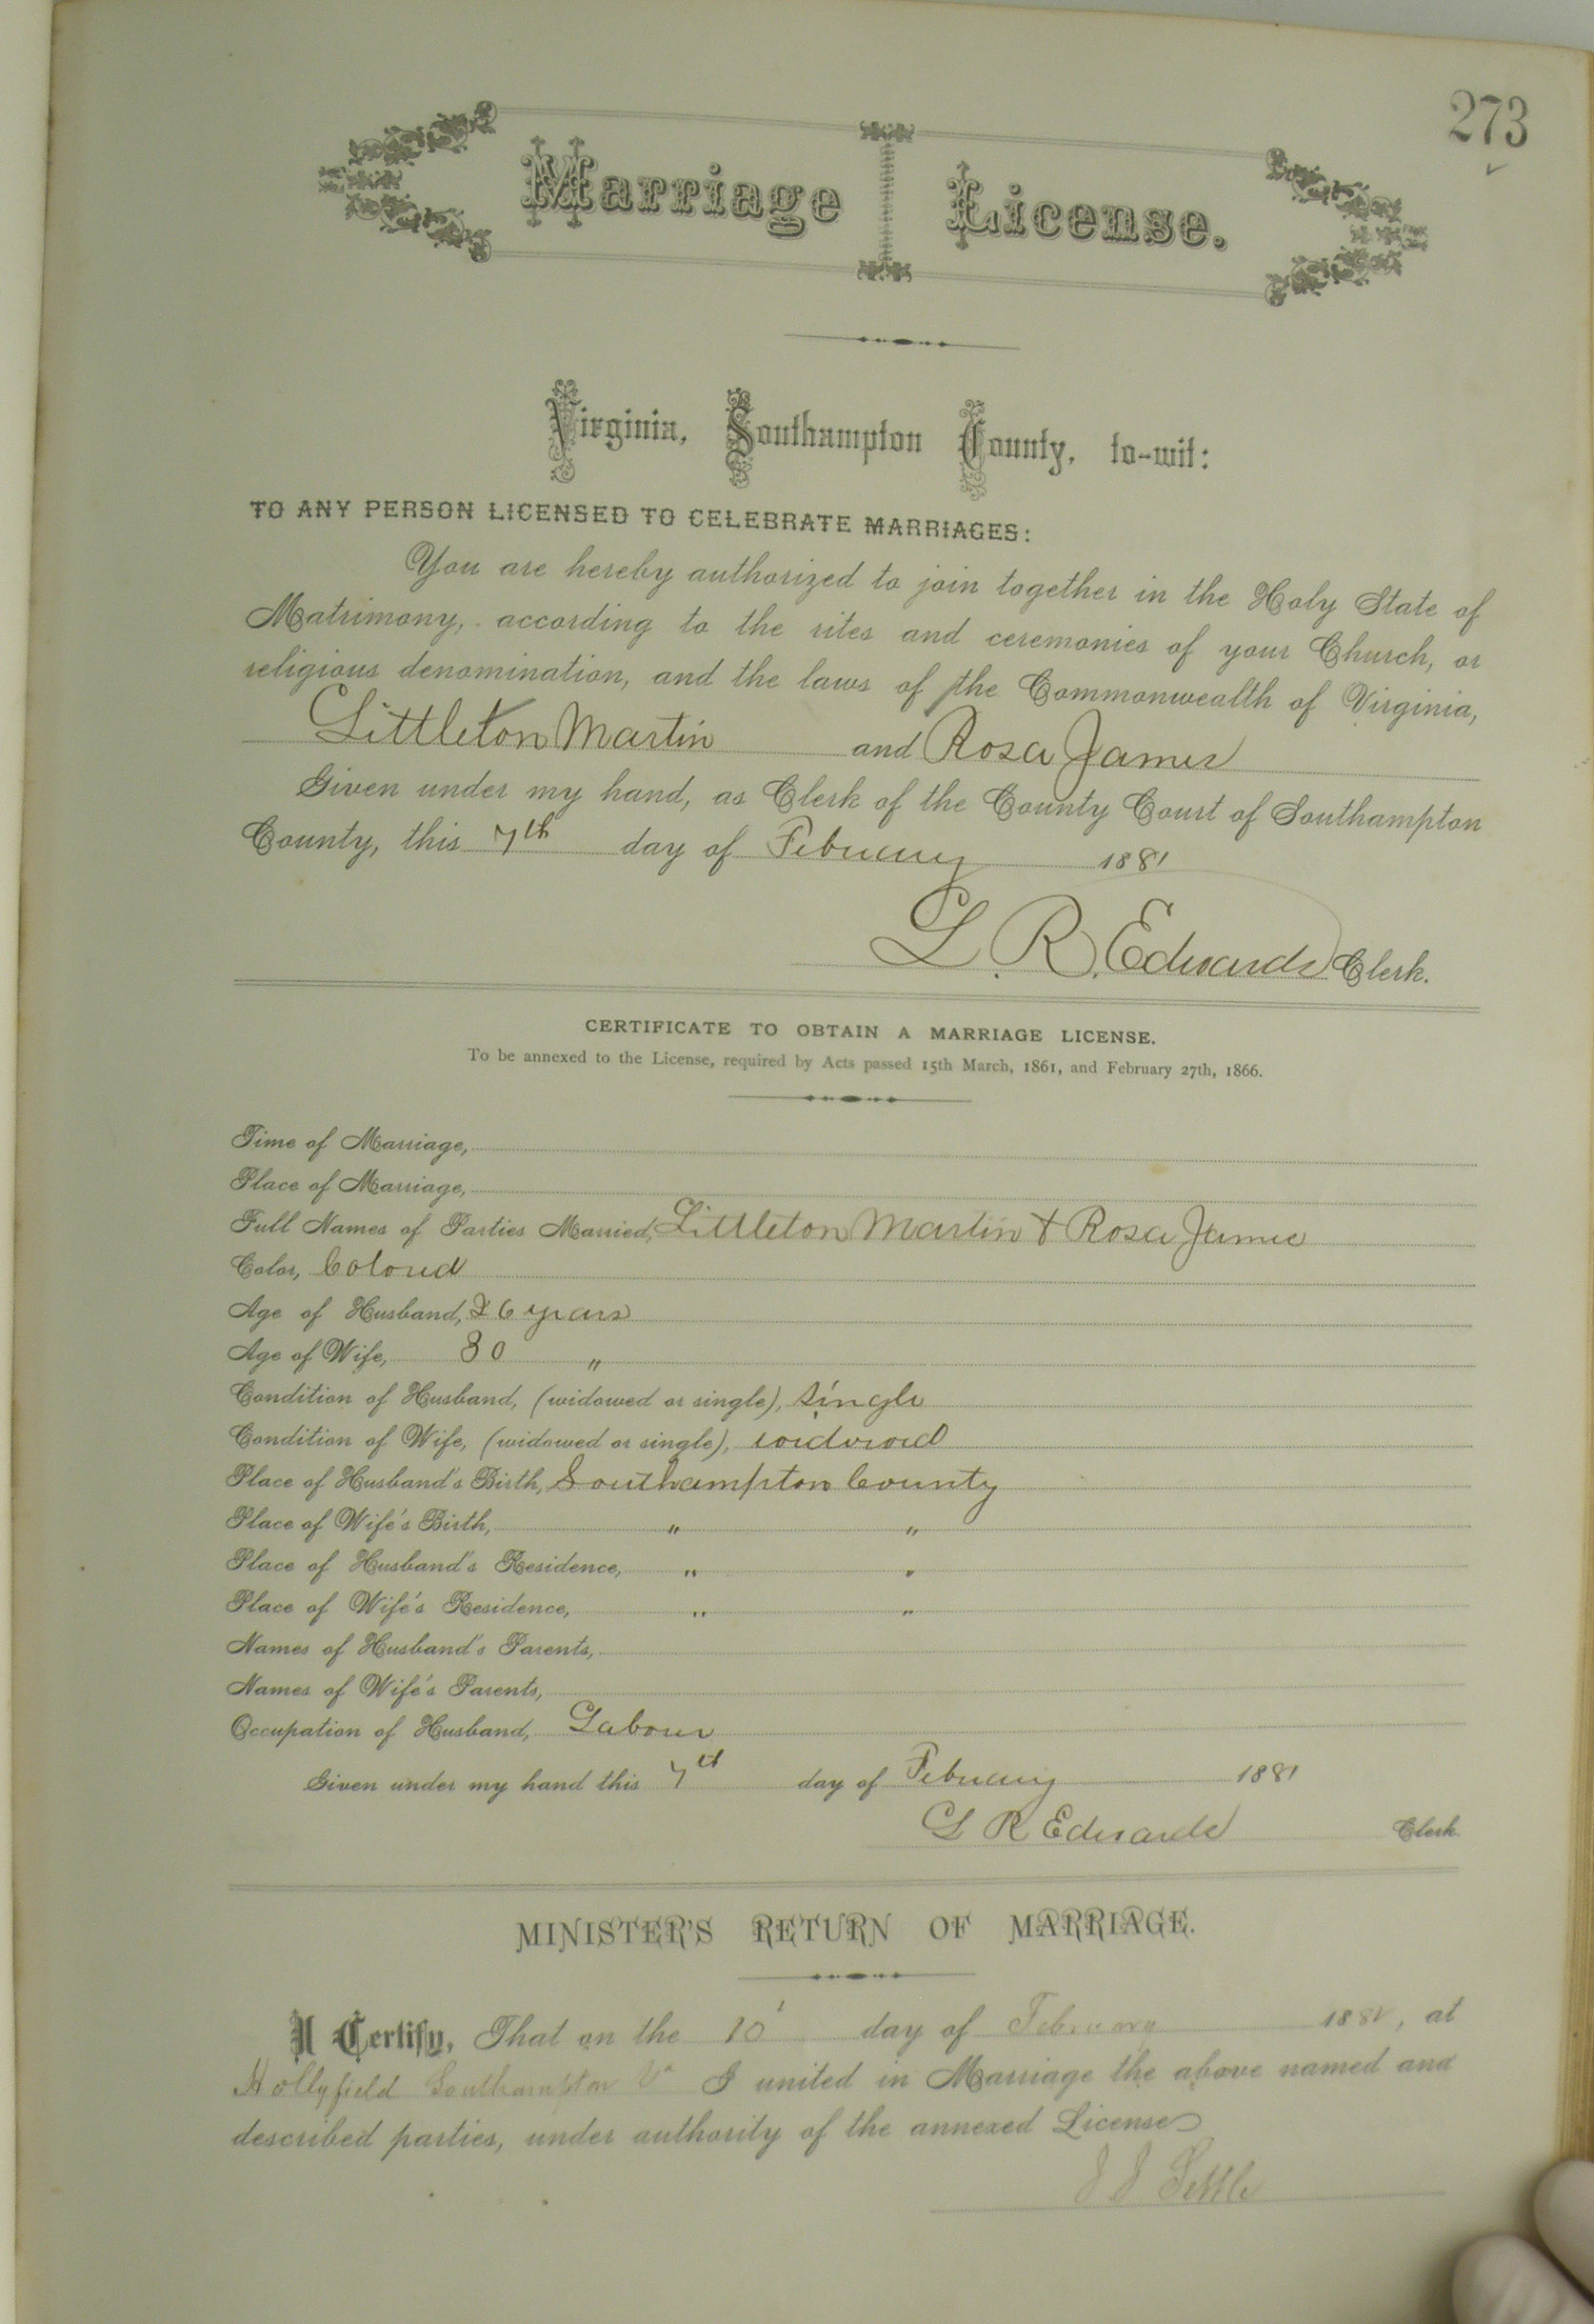 273
Marriage License.
Virginia, Southampton County, to-wit:
TO ANY PERSON LICENSED TO CELEBRATE MARRIAGES:
You are hereby authorized to join together in the Holy State of
Matrimony, according to the rites and ceremonies of your Church, or
religious denomination, and the laws of the Commonwealth of Virginia,
Littleton Martin and Rosa James
Given under my hand, as Clerk of the County Court of Southampton
County, this 7th day of February 1881
L. R. Edwards Clerk.
CERTIFICATE TO OBTAIN A MARRIAGE LICENSE.
To be annexed to the License, required by Acts passed 15th March, 1861, and February 27th, 1866.
Time of Marriage,
Place of Marriage,
Full Names of Parties Married, Littleton Martin & Rosa James
Color, Colored
Age of Husband, 26 years
Age of Wife, 30 "
Condition of Husband, (widowed or single), single
Condition of Wife, (widowed or single), widowed
Place of Husband's Birth, Southampton County
Place of Wife's Birth, " "
Place of Husband's Residence, " "
Place of Wife's Residence, " "
Names of Husband's Parents,
Names of Wife's Parents,
Occupation of Husband, Labour
Given under my hand this 7th day of February 1881
L R Edwards Clerk.
MINISTER'S RETURN OF MARRIAGE.
I Certify, That on the 10 day of February 188 , at
Hollyfield Southampton Va I united in Marriage the above named and
described parties, under authority of the annexed License
J J